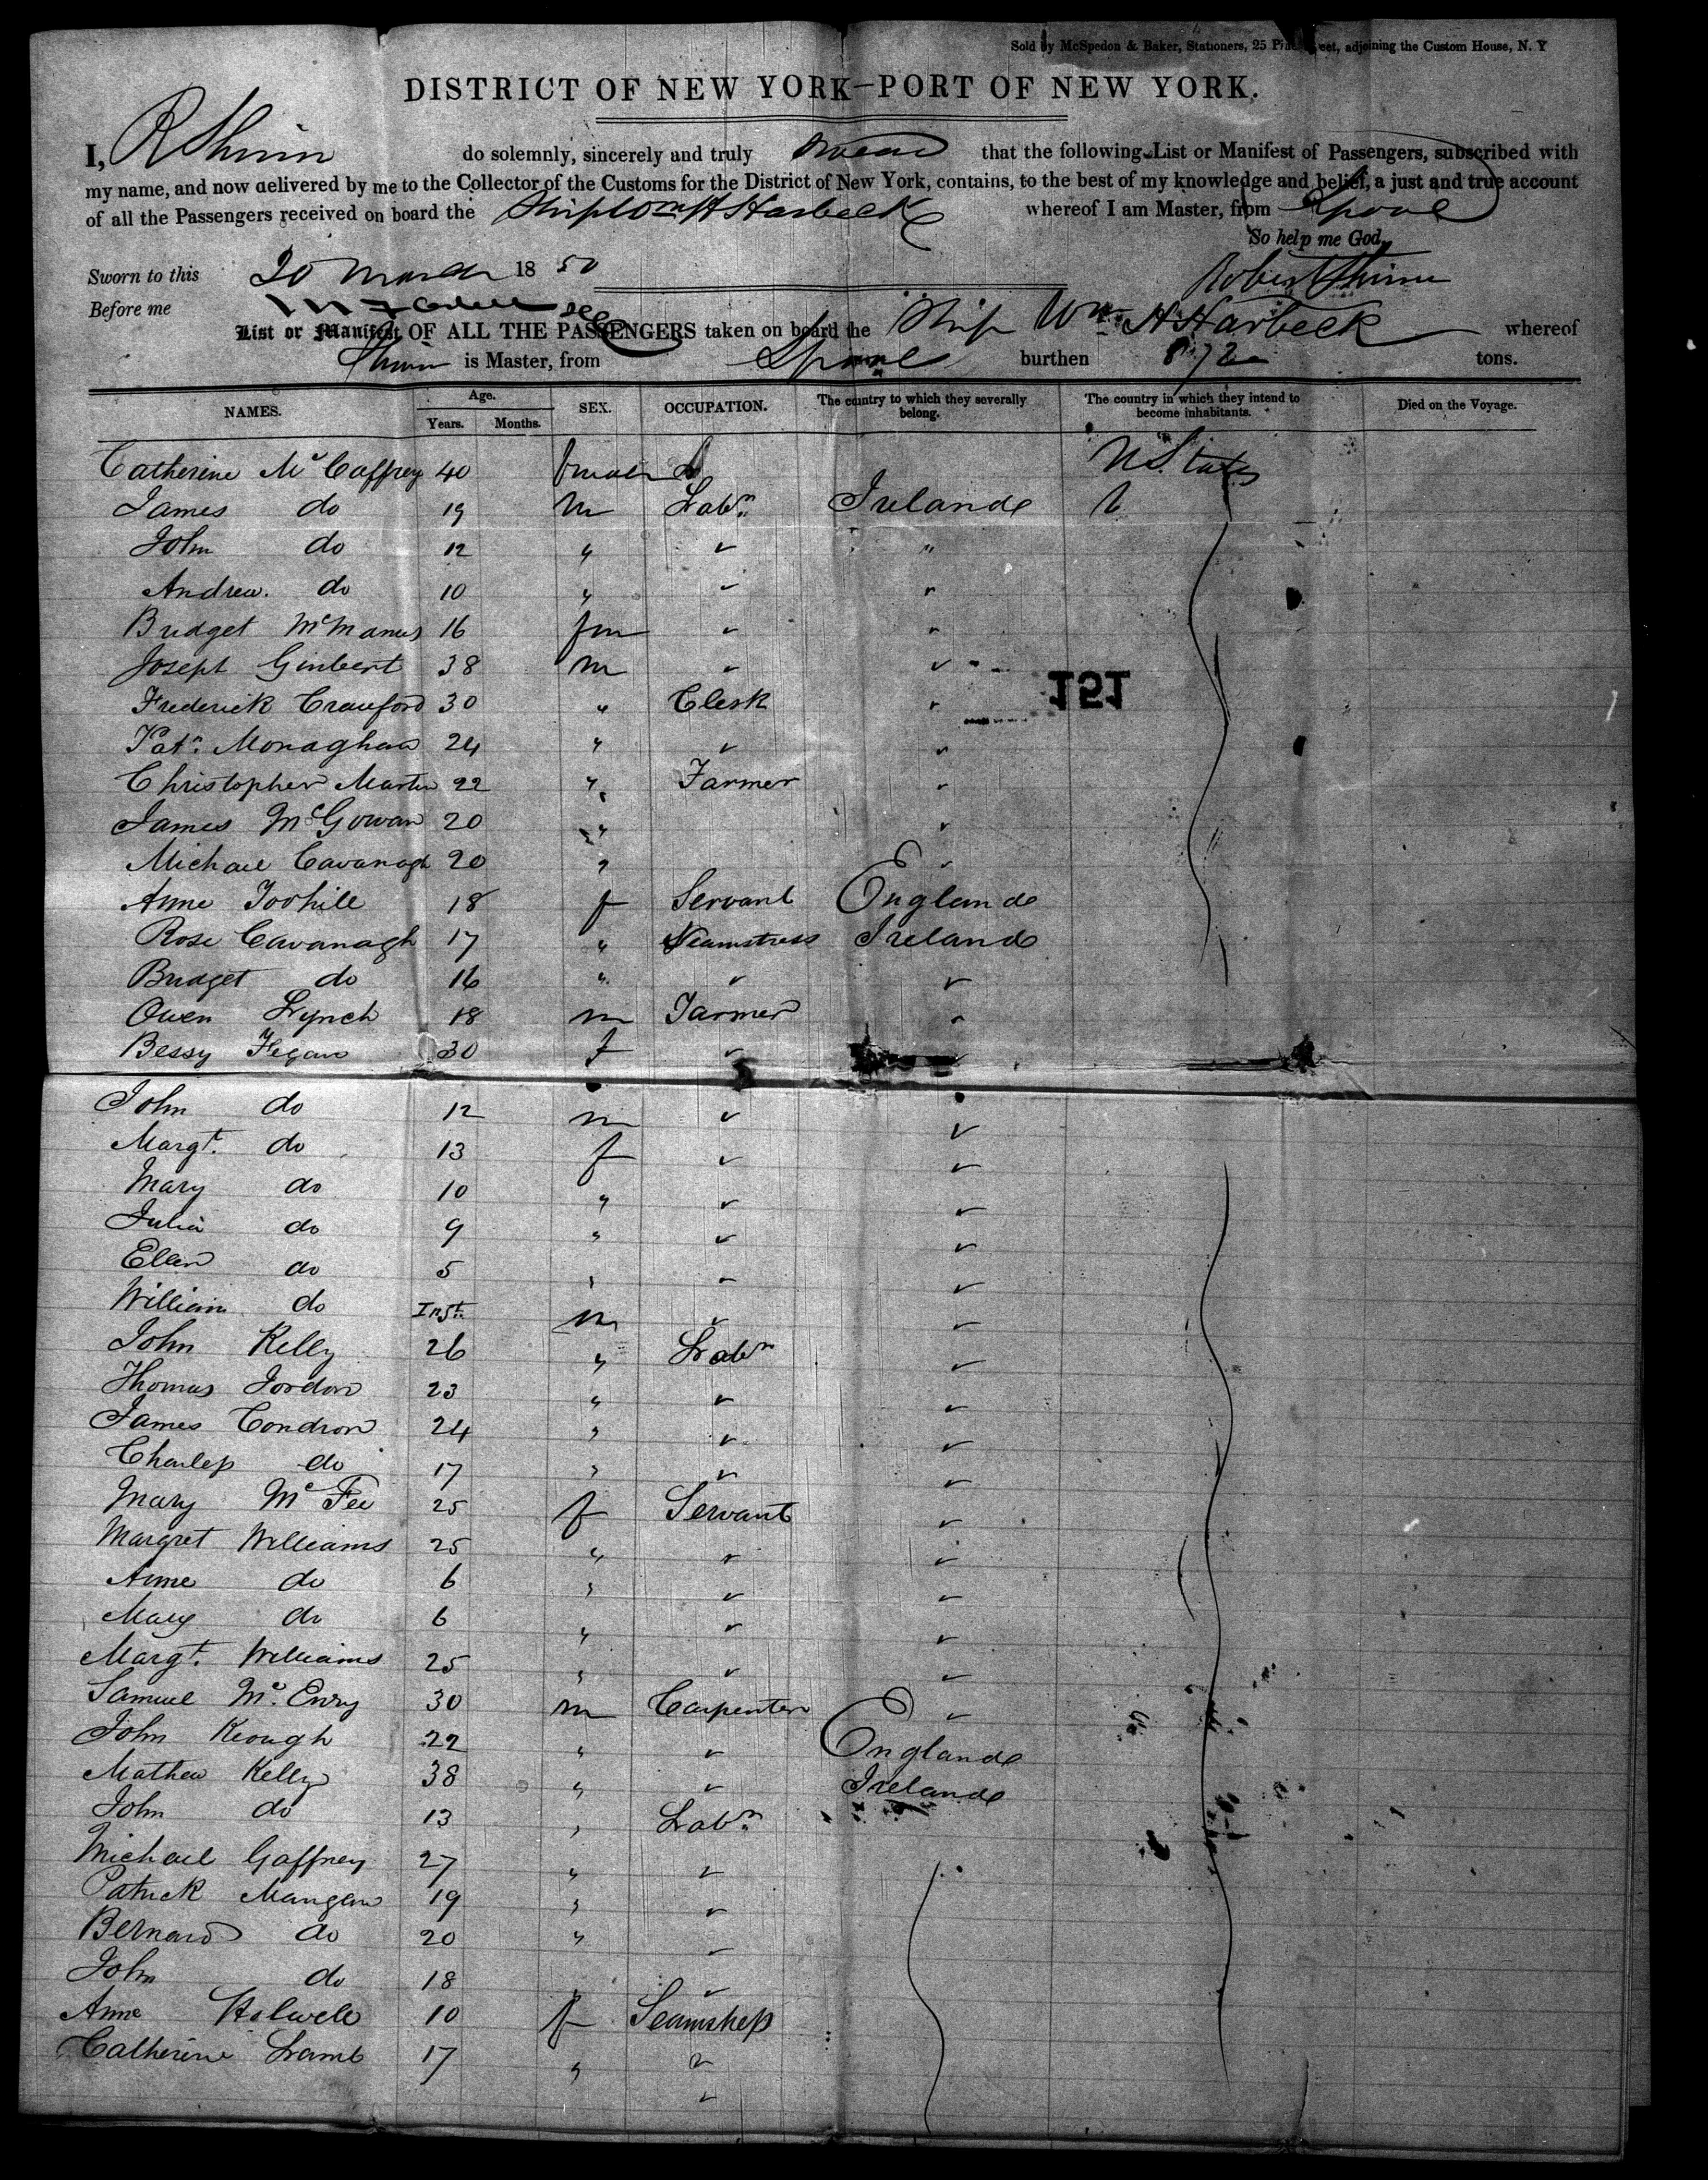 Sold by McSpedon & Baker, Stationers, 25 Pine Street, adjoining the Custom House, N. Y
DISTRICT OF NEW YORK—PORT OF NEW YORK.
I, R Thinn do solemnly, sincerely and truly swear that the following List or Manifest of Passengers, subscribed with
my name, and now delivered by me to the Collector of the Customs for the District of New York, contains, to the best of my knowledge and belief, a just and true account
of all the Passengers received on board the Ship Wm H Harbeck whereof I am Master, from Lpool
So help me God.
Sworn to this 20 March 1850 Robert Thinn
Before me
List or Manifest OF ALL THE PASSENGERS taken on board the Ship Wm H Harbeck whereof
Thinn is Master, from Lpool burthen 872 tons.
NAMES. Age. Years. Months. SEX. OCCUPATION. The country to which they severally belong. The country in which they intend to become inhabitants. Died on the Voyage.
Catherine McCaffrey 40 U States
James do 19 m Labr Ireland
John do 12 " " "
Andrew do 10 " " "
Bridget McManus 16 fm " "
Joseph Ginbert 38 m " "
Frederick Crauford 30 " Clerk "
151
Patk Monaghan 24 " " "
Christopher Martin 22 " Farmer "
James McGowan 20 " "
Michael Cavanagh 20 " "
Anne Toohill 18 f Servant England
Rose Cavanagh 17 " Seamstress Ireland
Bridget do 16 " " "
Owen Lynch 18 m Farmer "
Bessy Fegan 30 f " "
John do 12 m " "
Margt. do 13 f " "
Mary do 10 " " "
Julia do 9 " " "
Ellen do 5 " " "
William do Inft. m " "
John Kelly 26 " Labr "
Thomas Jordon 23 " " "
James Condron 24 " " "
Charles do 17 " " "
Mary McFee 25 f Servant "
Margret Williams 25 " " "
Anne do 6 " " "
Mary do 6 " " "
Margt. Williams 25 " " "
Samuel McEnry 30 m Carpenter "
John Keough 22 " " England
Mathew Kelly 38 " " Ireland
John do 13 " Labr
Michael Gaffney 27 " "
Patrick Mangan 19 " "
Bernard do 20 " "
John do 18 "
Anne Holwell 10 f Seamstress
Catherine Lamb 17 " "